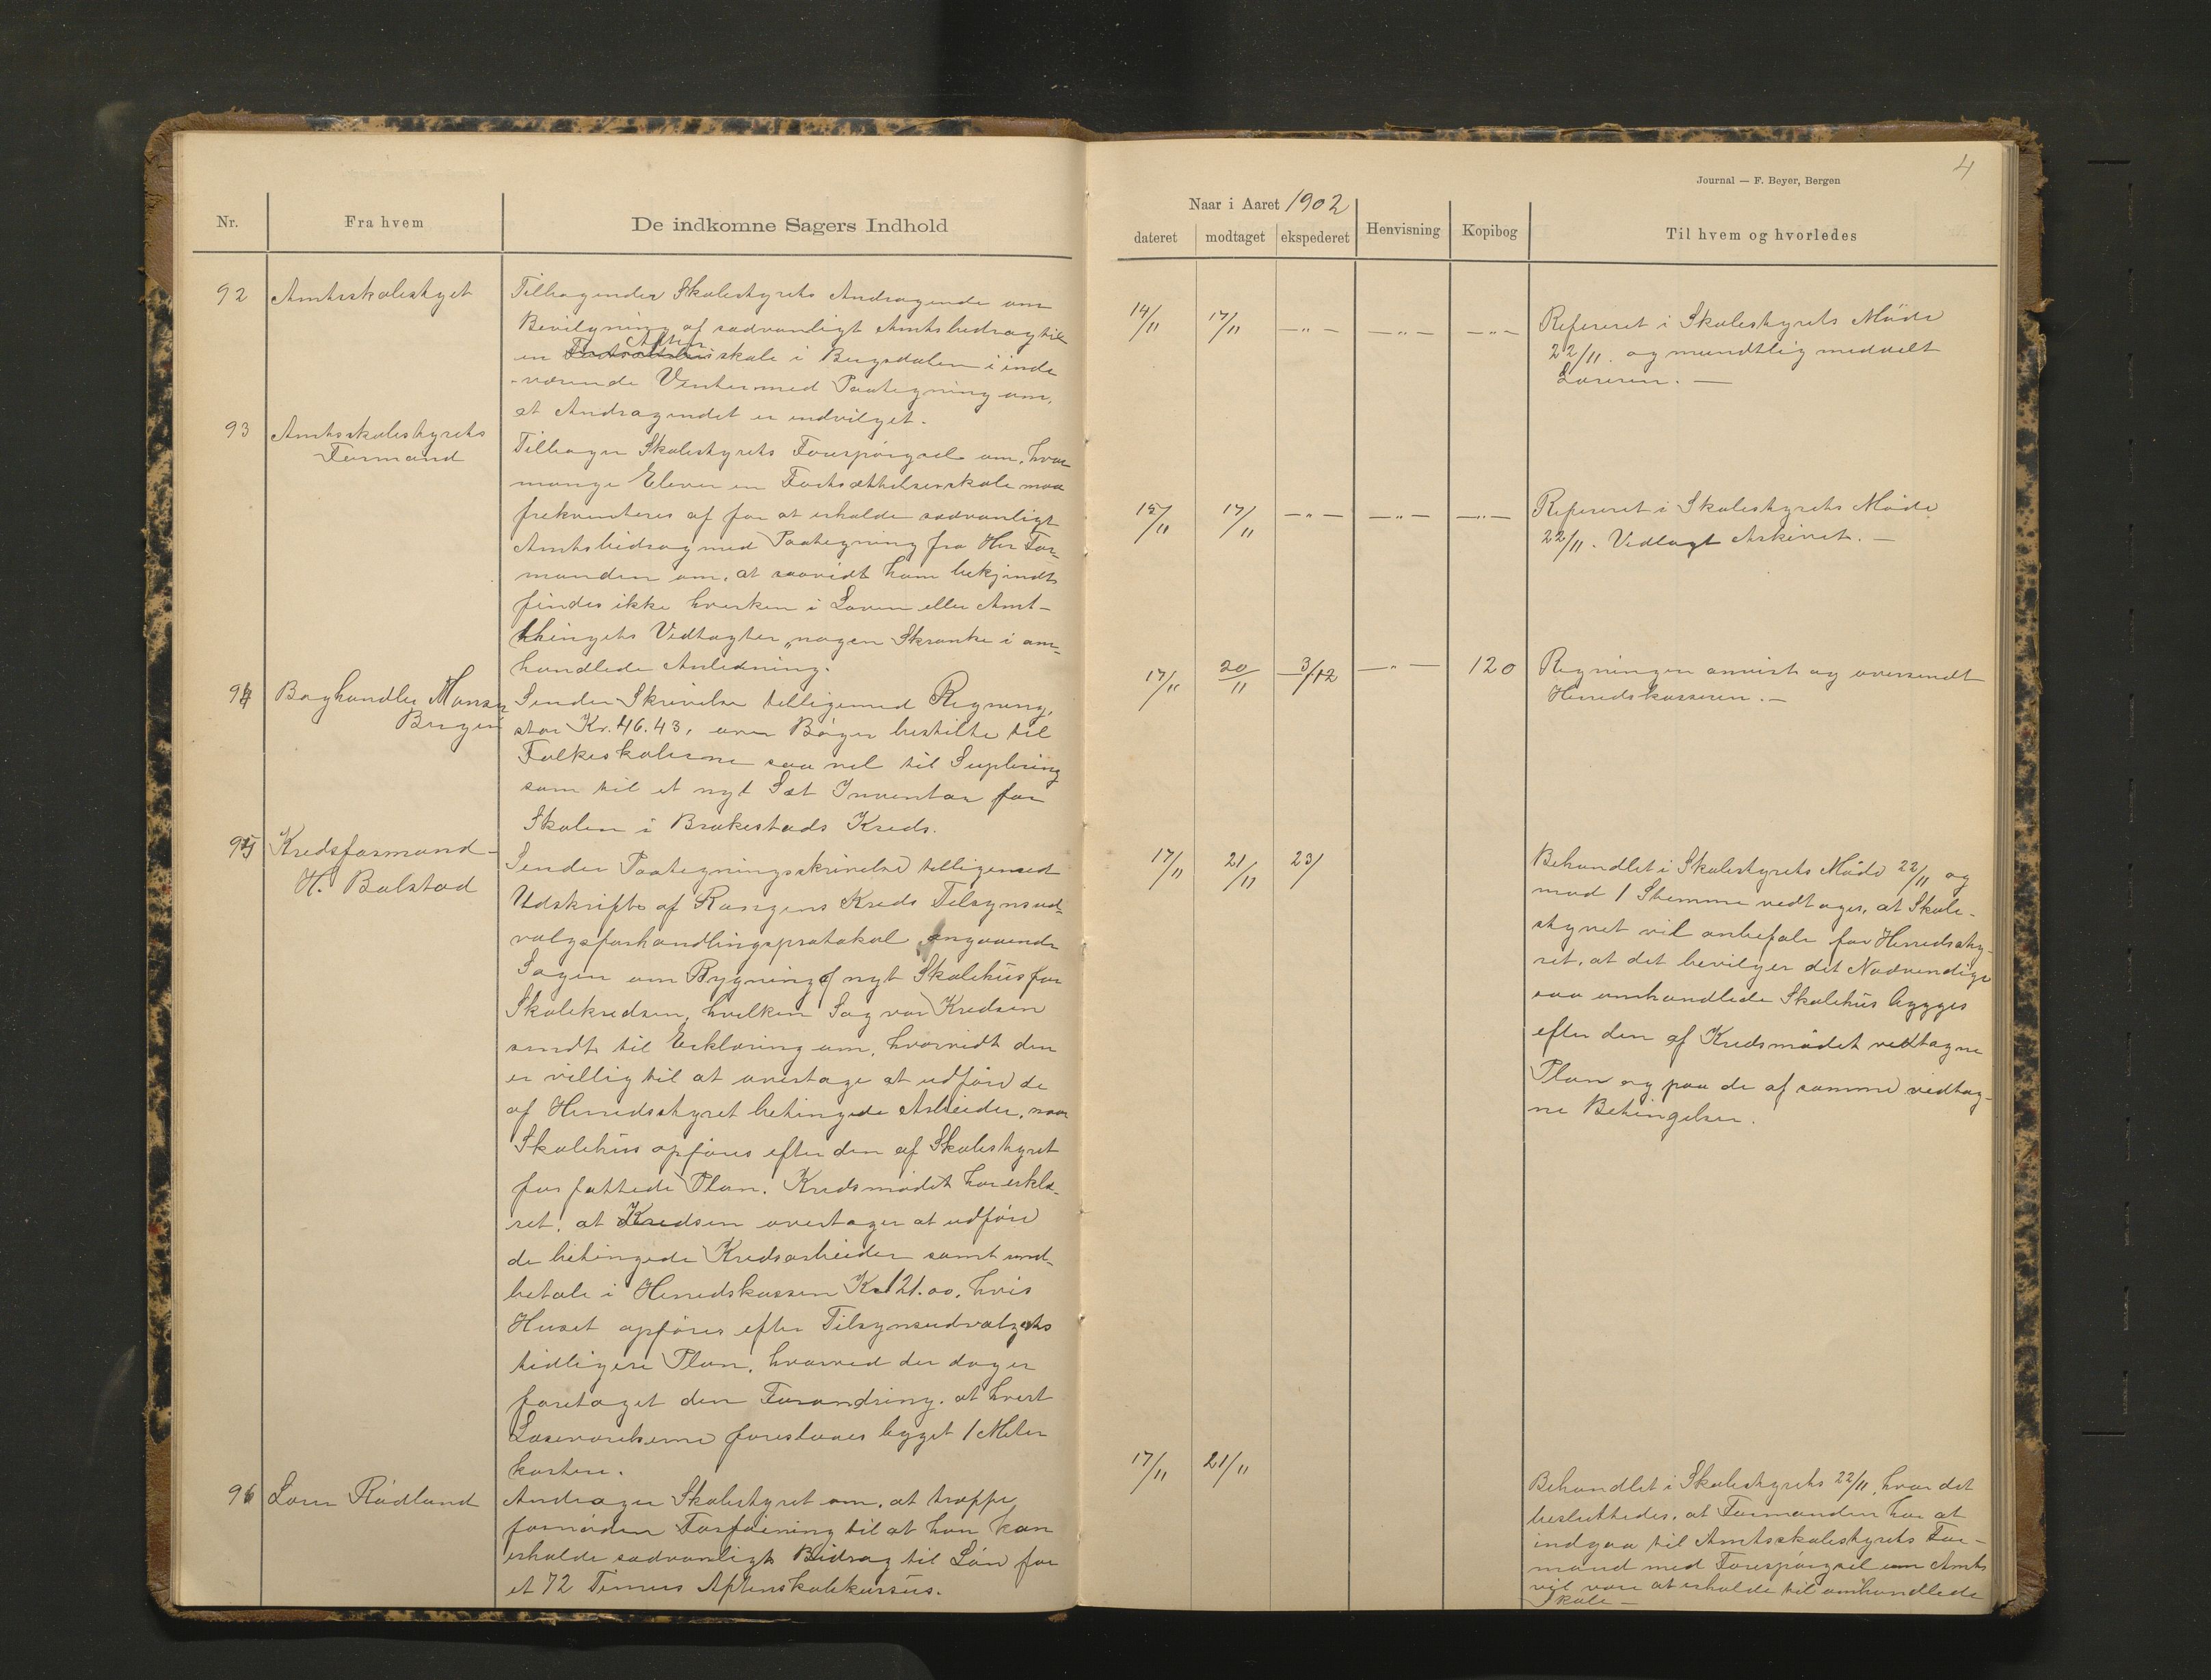 4
Journal — F. Beyer, Bergen
Nr.
Fra hvem
De indkomne Sagers Indhold
Naar i Aaret 1902
dateret
modtaget
ekspederet
Henvisning
Kopibog
Til hvem og hvorledes
92
Amtsskolestyret
Tilbagesender Skolestyrets Andragende om
Bevilgning af sædvanligt Amtsbidrag til
en Aftenskole i Bergsdalen i inde
-værende Vinter med Paategning om,
at Andragendet er indvilget.
14/11
17/11
—„—
—„—
—„—
Refereret i Skolestyrets Møde
22/11. og mundtlig meddelt
Læreren. —
93
Amtsskolestyrets
Formand
Skolestyrets Forespørgsel om, hvor
mange Elever en Fortsættelsesskole maa
frekventeres af for at erholde sædvanligt
Amtsbidrag med Paategning fra Hr. For-
manden om, at saavidt ham bekjendt
findes ikke hverken i Loven eller Amt-
thingets Vedtægter, nogen Skranke i om-
handlede Anledning.
15/11
17/11
—„—
—„—
—„—
Refereret i Skolestyrets Møde
22/11. Vedlagt Arkivet. —
94
Boghandler
Bergen
Sender Skrivelse tilligemed Regning,
stor Kr. 46.43, over Bøger bestilte til
Folkeskolerne saa vel til Suplering
som til et nyt Sæt Inventar for
Skolen i Brakestads Kreds.
17/11
20/11
3/12
—„—
120
Regningen anvist og oversendt
Herredskasseren. —
95
Kredsformand
H. Bolstad
Sender Paategningsskrivelse tilligemed
Udskrift af Kreds Tilsynsud-
valgsforhandlingsprotokol angaaende
Sagen om Bygning af nyt Skolehus for
Skolekredsen, hvilken Sag var Kredsen
sendt til Erklæring om, hvorvidt den
er villig til at overtage at udføre de
af Herredsstyret betingede Arbeider, naar
Skolehus opføres efter den af Skolestyret
forfattede Plan. Kredsmødet har erklæ-
ret, at Kredsen overtager at udføre
de betingede Kredsarbeider samt ind-
betale i Herredskassen Kr 121.00, hvis
Huset opføres efter Tilsynsudvalgets
tidligere Plan, hvorved der dog er
foretaget den Forandring, at hvert
Læseværelserne foreslaaes bygget 1 Meter
kortere.
17/11
21/11
23/
Behandlet i Skolestyrets Møde 22/11 og
mod 1 Stemme vedtages, at Skole-
styret vil anbefale for Herredssty-
ret, at det bevilger det Nødvendige
saa omhandlede Skolehus bygges
efter den af Kredsmødet vedtagne
Plan og paa de af samme vedtag-
ne Betingelser.
96
Lærer Rødland
Andrager Skolestyret om, at træffe
fornøden Forføining til at han kan
erholde sædvanligt Bidrag til Løn for
et 72 Timers Aftenskolekursus.
17/11
21/11
Behandlet i Skolestyrets 22/11, hvor det
besluttedes, at Formanden har at
indgaa til Amtsskolestyrets For-
mand med Forespørgsel om Amts
vil være at erholde til omhandlede
Skole —